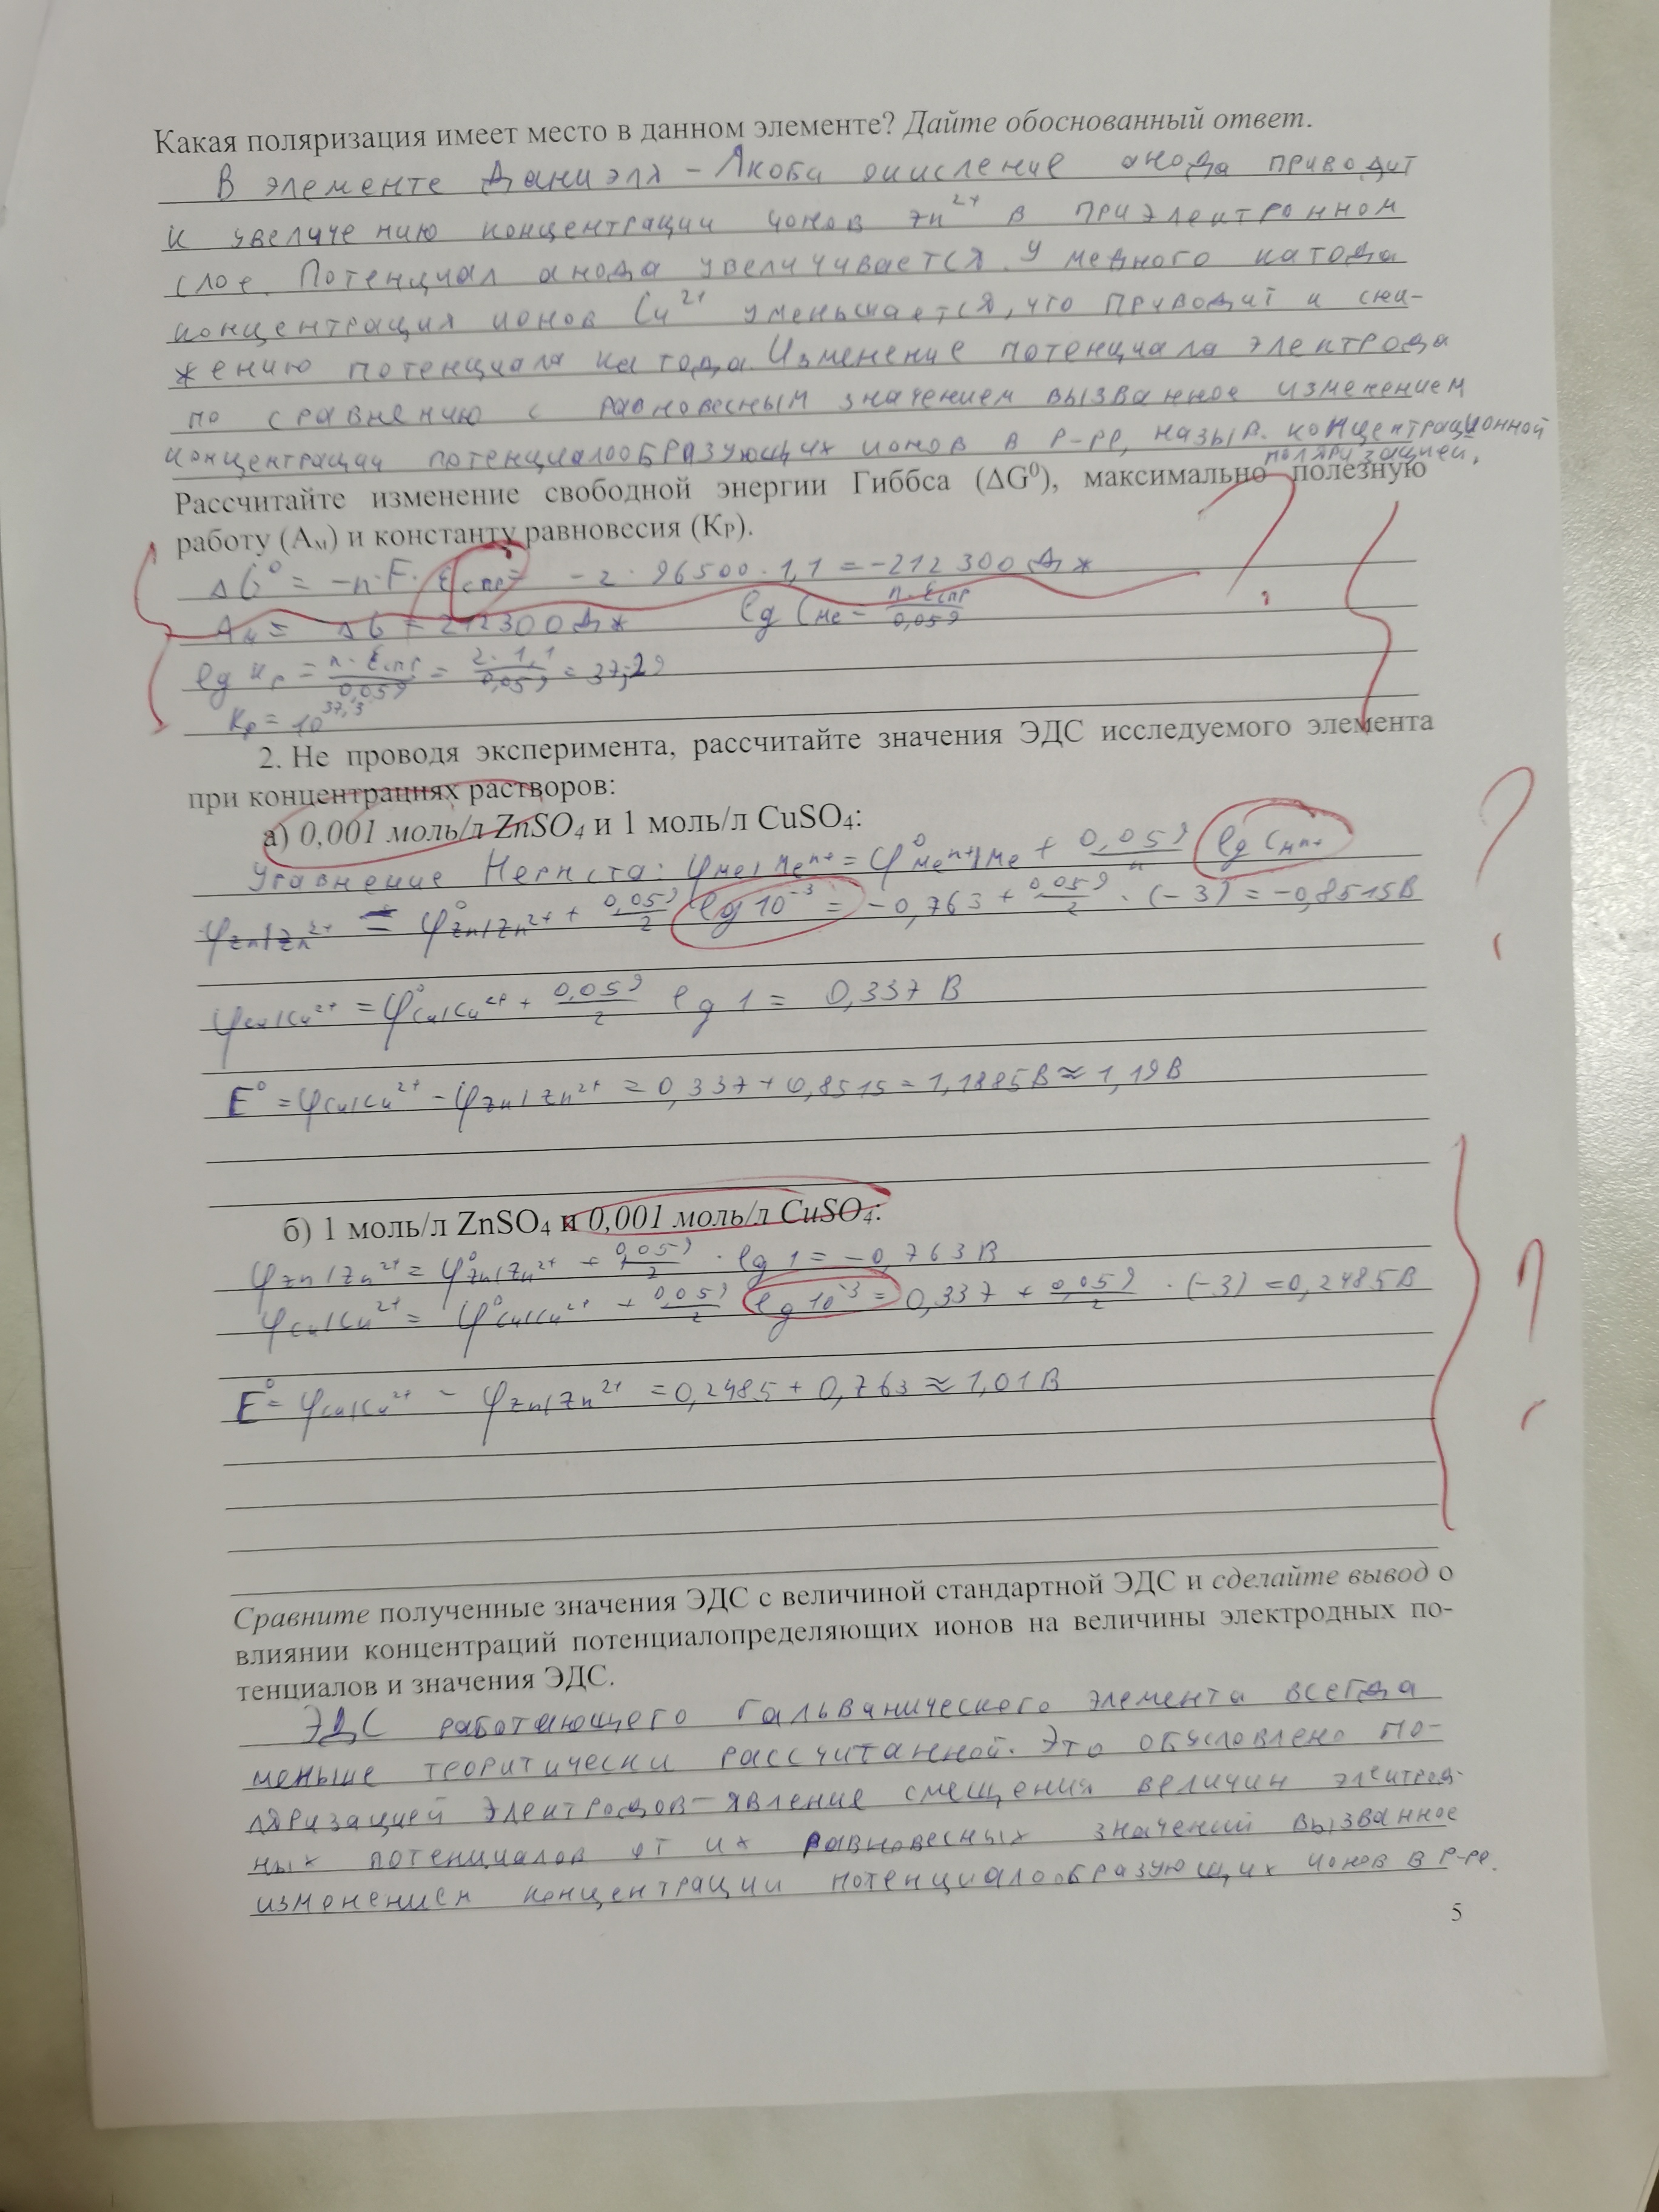 Какая поляризация имеет место в данном элементе? Дайте обоснованный ответ.
В элементе Даниэля - Якоби окисление анода приводит
к увеличению концентрации ионов Zn²⁺ в приэлектронном
слое. Потенциал анода увеличивается. У медного катода
концентрация ионов Cu²⁺ уменьшается, что приводит к сни-
жению потенциала катода. Изменение потенциала электрода
по сравнению с равновесным значением вызванное изменением
концентрации потенциалообразующих ионов в р-ре, назыв. концентрационной
поляризацией.
Рассчитайте изменение свободной энергии Гиббса (ΔG⁰), максимально полезную
работу (Aₘ) и константу равновесия (Kₚ).
ΔG⁰ = -n·F· εспр = -2·96500·1,1 = -212300 Дж
Aₘ = ΔG = 212300 Дж lg CMe = n·εспр/0,059
lg Kр = n·εспр/0,059 = 2·1,1/0,059 = 37,29
Kр = 10³⁷'³
2. Не проводя эксперимента, рассчитайте значения ЭДС исследуемого элемента
при концентрациях растворов:
а) 0,001 моль/л ZnSO₄ и 1 моль/л CuSO₄:
Уравнение Нернста: φMe|Meⁿ⁺ = φ⁰Meⁿ⁺|Me + 0,059/n lg CMⁿ⁺
φZn|Zn²⁺ = φ⁰Zn|Zn²⁺ + 0,059/2 lg 10⁻³ = -0,763 + 0,059/2 · (-3) = -0,8515 В
φCu|Cu²⁺ = φ⁰Cu|Cu²⁺ + 0,059/2 lg 1 = 0,337 В
E⁰ = φCu|Cu²⁺ - φZn|Zn²⁺ = 0,337 + 0,8515 = 1,1885 В ≈ 1,19 В
б) 1 моль/л ZnSO₄ и 0,001 моль/л CuSO₄:
φZn|Zn²⁺ = φ⁰Zn|Zn²⁺ + 0,059/2 · lg 1 = -0,763 В
φCu|Cu²⁺ = φ⁰Cu|Cu²⁺ + 0,059/2 lg 10⁻³ = 0,337 + 0,059/2 · (-3) = 0,2485 В
E⁰ = φCu|Cu²⁺ - φZn|Zn²⁺ = 0,2485 + 0,763 ≈ 1,01 В
Сравните полученные значения ЭДС с величиной стандартной ЭДС и сделайте вывод о
влиянии концентраций потенциалопределяющих ионов на величины электродных по-
тенциалов и значения ЭДС.
ЭДС работающего гальванического элемента всегда
меньше теоритически рассчитанной. Это обусловлено по-
ляризацией электродов - явление смещения величин электрод-
ных потенциалов от их равновесных значений вызванное
изменением концентрации потенциалообразующих ионов в р-ре.
5